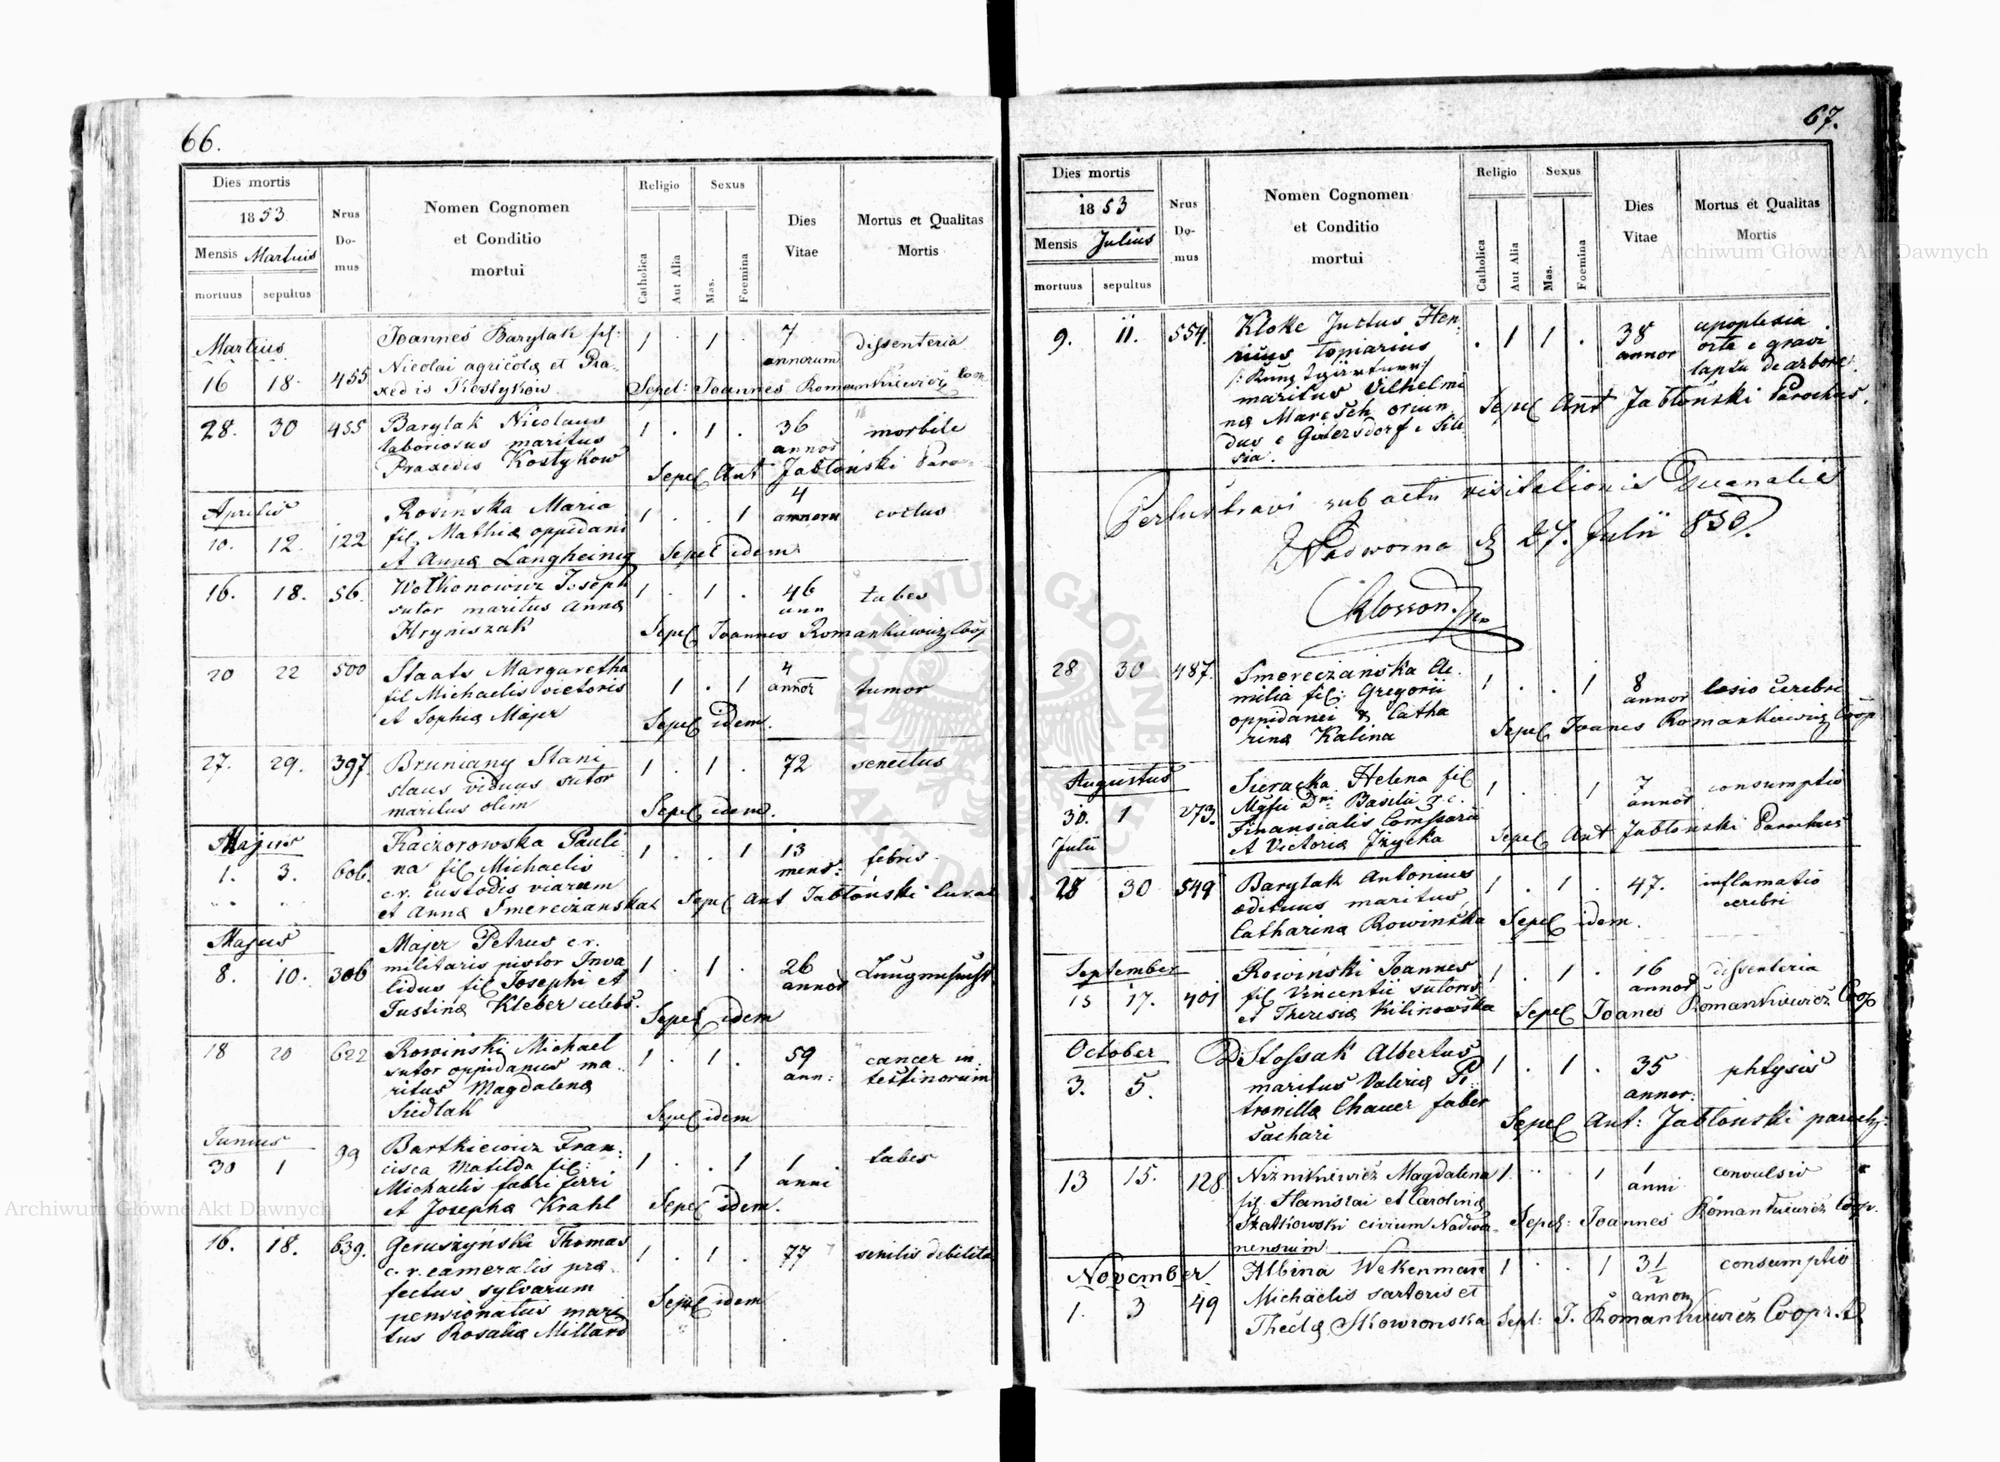 66.
Dies mortis
1853
Mensis Martius
mortuus
sepultus
Nrus
Do-
mus
Nomen Cognomen
et Conditio
mortui
Religio
Catholica
Aut Alia
Sexus
Mas.
Foemina
Dies
Vitae
Mortus et Qualitas
Mortis
Martius
16 18. 455
Joannes Barylak fil:
Nicolai agricolæ et Pra-
xedis Kostykow
1 . 1 . 7
annorum
dissenteria
Sepel: Joannes Romankiewicz Coop
28. 30 455
Barylak Nicolaus
laboriosus maritus
Praxedis Kostykow
1 . 1 . 36
annor
morbile
Sepel Ant Jabłoński Paro
Aprilis
10. 12. 122
Rosińska Maria
fil Mathiæ oppidani
et Annæ Langheinig
1 . . 1 4
annoru
Sepel idem
16. 18. 56.
Wołkonowicz Joseph
sutor maritus Annæ
Hryniszak
1 . 1 . 46
ann
tabes
Sepel Joannes Romankiewicz Coop
20 22 500
Staats Margaretha
fil Michaelis victoris
et Sophiæ Majer
1 . 1 4
annor
tumor
Sepel idem.
27. 29. 397.
Bruniany Stani
slaus viduus sutor
maritus olim
1 . 1 . 72
senectus
Sepel idem.
Majus
1. 3. 606.
Kaczorowska Pauli
na fil Michaelis
c.r. custodis viarum
et Annæ Smereczanska
1 . . 1 13
mens:
febris
Sepel Ant Jabłoński Curat
Majus
8. 10. 306
Majer Petrus c.r.
militaris pistor Inva
lidus fil Josephi et
Justinæ Kleber celebs.
1 . 1 . 26
annor
Lungensucht
Sepel idem
18 20 622
Rowiński Michael
sutor oppidanus ma
ritus Magdalenæ
Siedlak
1 . 1 . 59
ann:
cancer in
testinorum
Sepel idem
Junius
30 1 99
Bartkiewicz Fran:
cisca Matilda fil:
Michaelis fabri ferri
et Josephæ Krahl
1 . . 1 1
anni
tabes
Sepel idem.
16. 18. 639.
Geruszyński Thomas
c.r. cameralis præ
fectus sylvarum
pensionatus mari
tus Rosaliæ Millard
1 . 1 . 77
senilis debilita
Sepel idem
67.
Dies mortis
1853
Mensis Julius
mortuus
sepultus
Nrus
Do-
mus
Nomen Cognomen
et Conditio
mortui
Religio
Catholica
Aut Alia
Sexus
Mas.
Foemina
Dies
Vitae
Mortus et Qualitas
Mortis
9. 11. 554.
Kloke Justus Hen
ricus topiarius
maritus Vilhelmi
næ Maresch oriun
dus e Gäbersdorf e Sile
sia.
. 1 1 . 38
annor
apoplexia
orta e gravi
lapsu de arbore.
Sepel Ant Jabłoński Parochus.
Perlustravi sub actu visitationis Decanalis
Nadworna d 27. Julii 853.
28 30 487.
Smereczanska Ae
milia fil: Gregorii
oppidanei & Catha
rinæ Kalina
1 . . 1 8
annor
læsio cerebri
Sepel Joanes Romankiewicz Coop
Augustus
30. 1 273.
Julii
Sieracka Helena fil
Mgfci Dni Basilii c.r.
Finansialis
et Victoriæ Jżycka
1 . . 1 7
annor
consumptio
Sepel Ant Jabłoński Parochus
28 30 549
Barylak Antonius
ædituus maritus
Catharinæ Rowińska
1 . 1 . 47.
inflamatio
cerebri
Sepel idem.
September
15 17. 401
Rowiński Joannes
fil Vincentii sutoris
et Theresiæ Kilinowska
1 . 1 . 16
annor
dissenteria
Sepel Joanes Romankiewicz Coop
October
3. 5.
D Stossak Albertus
maritus Valeriæ Pe
tronillæ Chauer faber
sachari
1 . 1 . 35
annor:
phtysis
Sepel Ant: Jabłoński paroch:
13 15. 128.
Niżnikiewicz Magdalena
fil. Stanislai et Carolinæ
Szatkowski civium Nadwo-
nensium
1 . . 1 1
anni
convulsio
Sepel: Joannes Romankiewicz Coop.
November
1. 3 49
Albina Wekenman
Michaelis sartoris et
Theclæ Skowronska
1 . . 1 3 1/2
annor
consumptio
Sepl: J. Romankiewicz Coopr.
Archiwum Główne Akt Dawnych
Archiwum Główne Akt Dawnych
ARCHIWUM GŁÓWNE AKT DAWNYCH